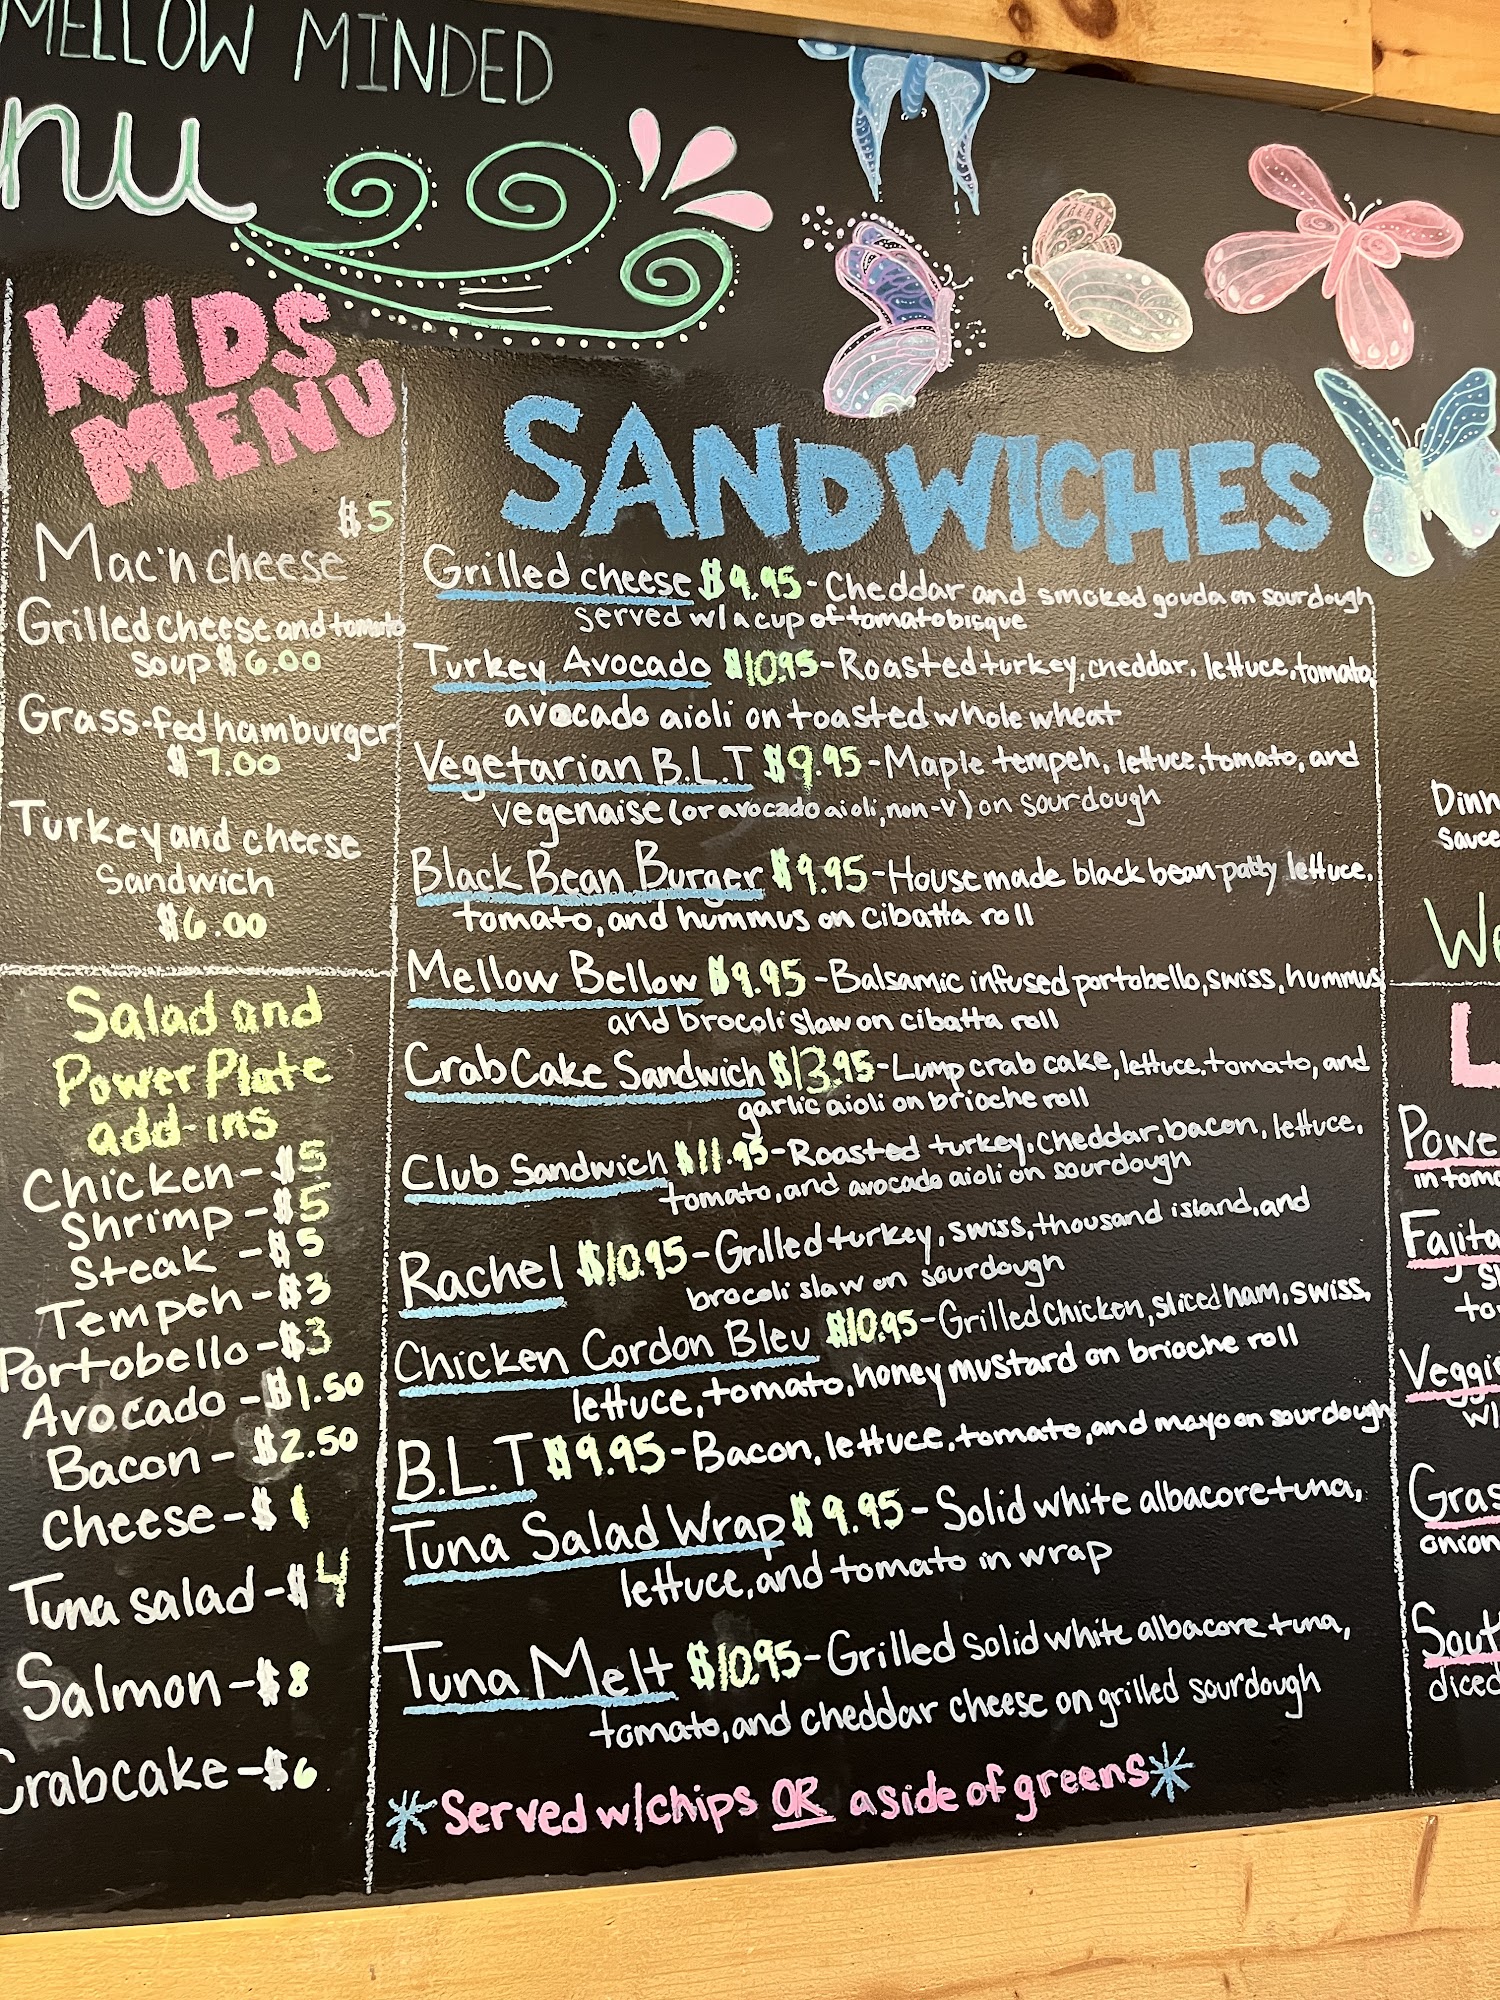 MELLOW MINDED
nu
KIDS
MENU
$5
Mac'n cheese
Grilled cheese and tomato
soup $6.00
Grass-fed hamburger
$7.00
Turkey and cheese
Sandwich
$6.00
Salad and
Power Plate
add-ins
Chicken-$5
Shrimp-$5
Steak-$5
Tempeh-$3
Portobello-$3
Avocado-$1.50
Bacon-$2.50
Cheese-$1
Tuna salad-$4
Salmon-$8
Crabcake-$6
SANDWICHES
Grilled cheese $9.95-Cheddar and smoked gouda on sourdough
served w/ a cup of tomato bisque
Turkey Avocado $10.95-Roasted turkey, cheddar, lettuce, tomato,
avocado aioli on toasted whole wheat
Vegetarian B.L.T $9.95-Maple tempeh, lettuce, tomato, and
vegenaise (or avocado aioli, non-v) on sourdough
Black Bean Burger $9.95-Housemade black bean patty lettuce,
tomato, and hummus on cibatta roll
Mellow Bellow $9.95-Balsamic infused portobello, swiss, hummus
and brocoli slaw on cibatta roll
Crab Cake Sandwich $13.95-Lump crab cake, lettuce, tomato, and
garlic aioli on brioche roll
Club Sandwich $11.95-Roasted turkey, cheddar, bacon, lettuce,
tomato, and avocado aioli on sourdough
Rachel $10.95-Grilled turkey, swiss, thousand island, and
brocoli slaw on sourdough
Chicken Cordon Bleu $10.95-Grilled chicken, sliced ham, swiss,
lettuce, tomato, honey mustard on brioche roll
B.L.T $9.95-Bacon, lettuce, tomato, and mayo on sourdough
Tuna Salad Wrap $9.95-Solid white albacore tuna,
lettuce, and tomato in wrap
Tuna Melt $10.95-Grilled solid white albacore tuna,
tomato, and cheddar cheese on grilled sourdough
*Served w/chips OR a side of greens*
Dinn
sauce
We
L
Powe
in toma
Fajita
to
Veggi
w/
Gras
onion
Sout
diced